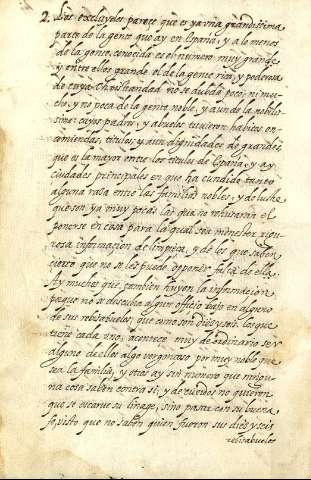 2. Los excluydos parece que es ya una grandissima
parte de la gente que ay en España, y a lo menos
de la gente conocida es el numero muy grande,
y entre ellos grande n. de la gente rica, y poderosa
de cuya christiandad no se dubda poco, ni mu-
cho, y no poca de la gente noble, y aun de la nobilis-
sima: cuyos padres, y abuelos tuvieron habitos en-
comiendas, titulos, y aun dignidades de grandes
que es la mayor entre los titulos de España, y ay
ciudades principales en que ha cundido tanto
alguna rasa entre las familias nobles, y de lustre
que son ya muy pocas las que no rehusaran el
ponerse en cosa para la qual sea menester rigu-
rosa informacion de limpieça, y de los que saben
cierto que no se les puede opponer falta de ella
Ay muchos que tambien huyen la informacion
porque no se descubra algun officio bajo en alguno
de sus rebisabuelos, que como son diez y seis los que
tiene cada uno, acontece muy de ordinario ser
alguno de ellos algo vergonçoso por muy noble que
sea la familia, y otros ay sin numero que ningu-
na cosa saben contra si, y de cuerdos no quieren
que se escarve su linage, sino passar con su buena
fe, visto que no saben quien fueron sus diez y seis
rebisabuelos